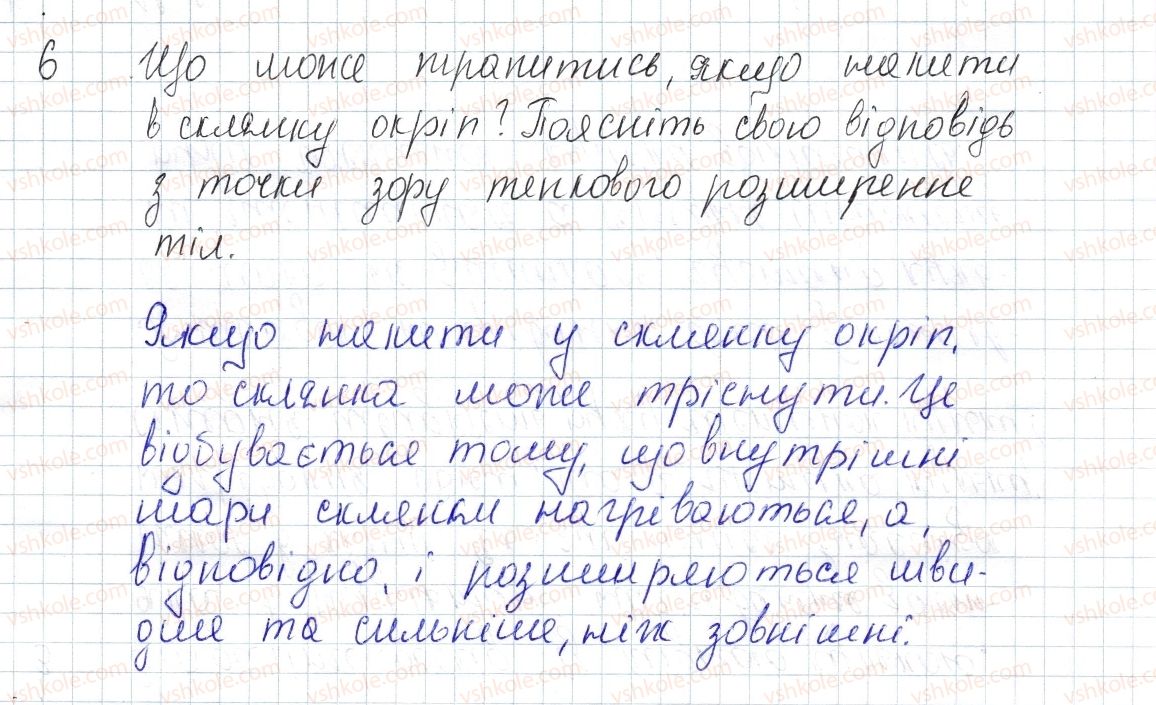 6 Що може трапитись, якщо налити
в склянку окріп? Поясніть свою відповідь
з точки зору теплового розширення
тіл.
Якщо налити у склянку окріп,
то склянка може тріснути. Це
відбувається тому, що внутрішні
шари склянки нагріваються, а,
відповідно, і розширюються шви-
дше та сильніше, ніж зовнішні.